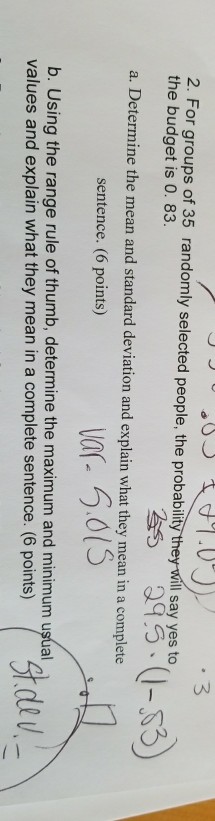 2. For groups of 35 randomly selected people, the probability they will say yes to
the budget is 0. 83.
29.5 · (1-.83)
a. Determine the mean and standard deviation and explain what they mean in a complete
sentence. (6 points)
var = 5.015
b. Using the range rule of thumb, determine the maximum and minimum usual
values and explain what they mean in a complete sentence. (6 points)
St.dev. =